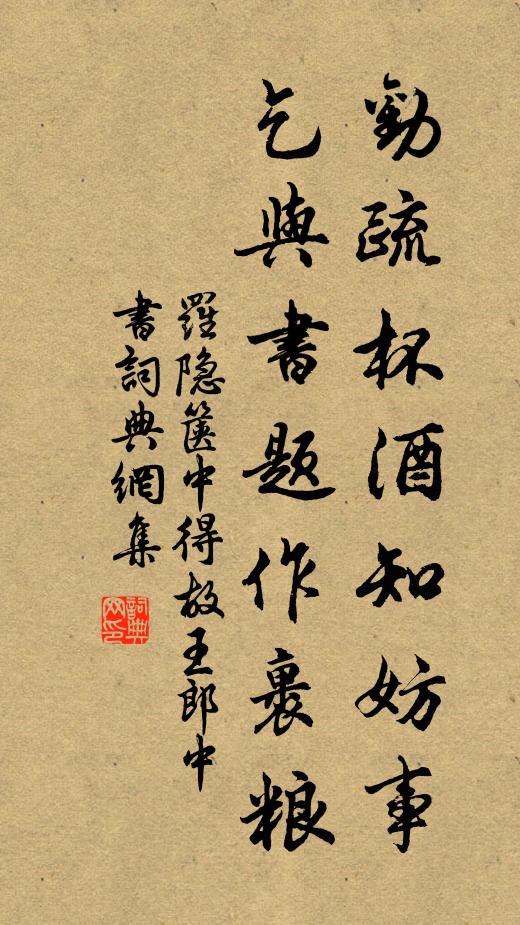 勸疏杯酒知妨事
乞與書題作裹粮
羅隐篋中得故王郎中
書詞典網集
詞典网印